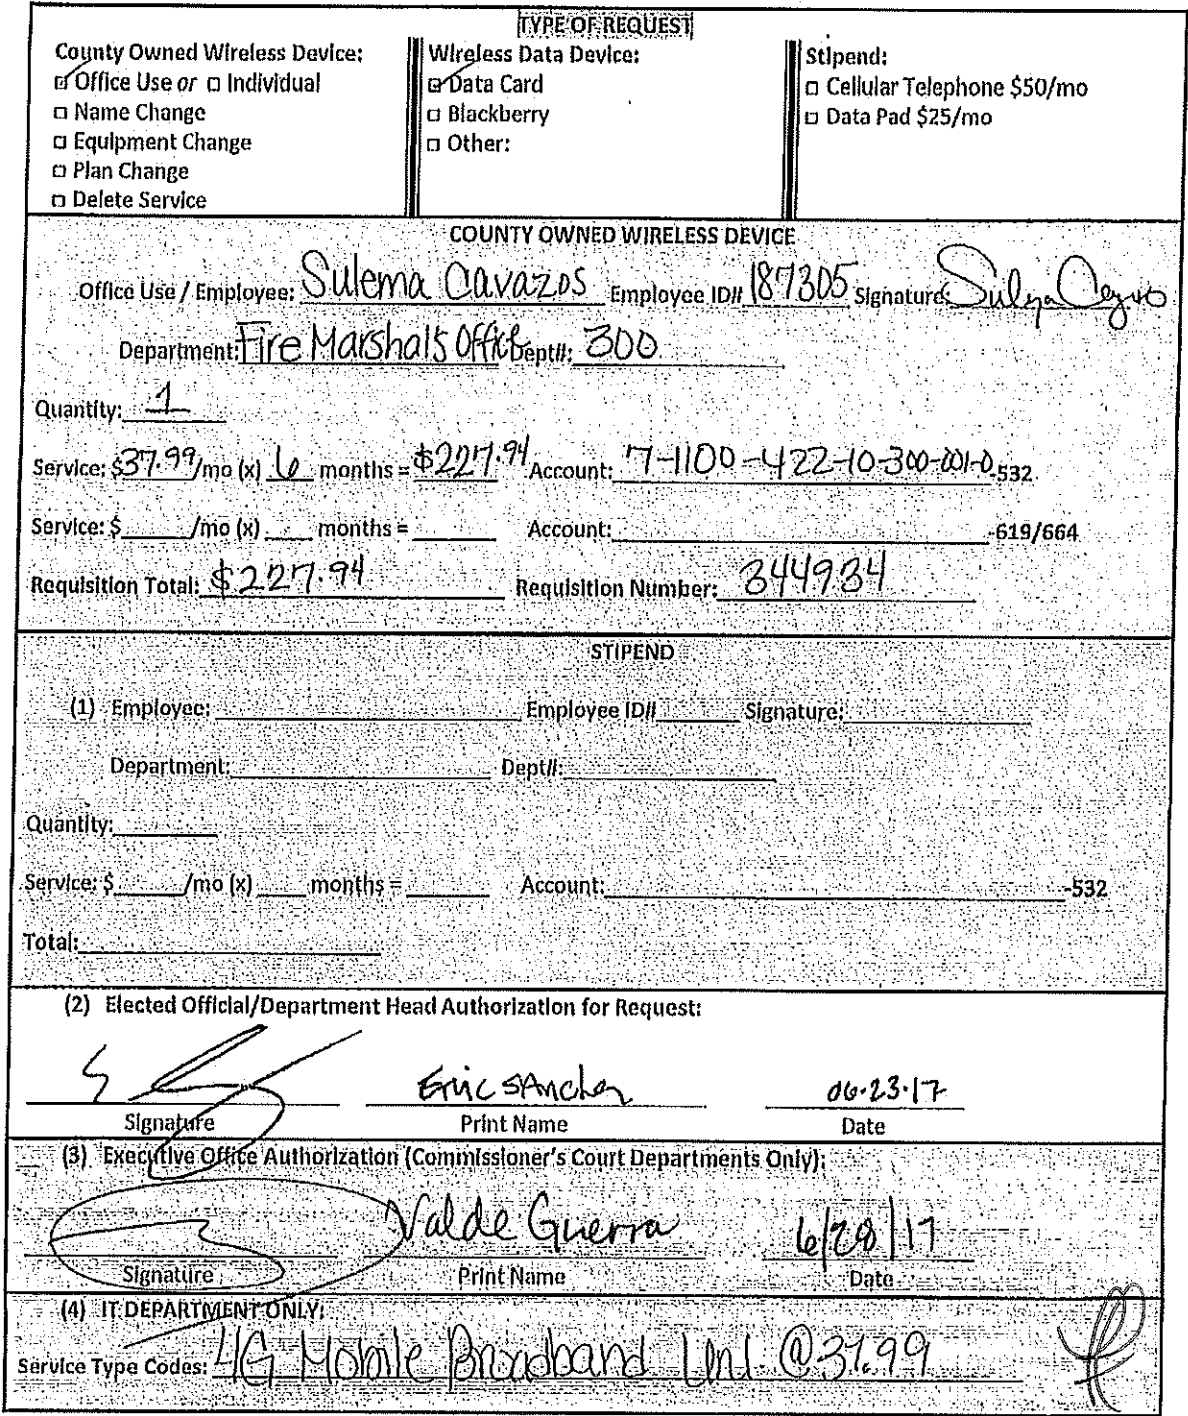 TYPE OF REQUEST
County Owned Wireless Device:
☑ Office Use or □ Individual
□ Name Change
□ Equipment Change
□ Plan Change
□ Delete Service
Wireless Data Device:
☑ Data Card
□ Blackberry
□ Other:
Stipend:
□ Cellular Telephone $50/mo
□ Data Pad $25/mo
COUNTY OWNED WIRELESS DEVICE
Office Use / Employee: Sulema Cavazos Employee ID# 187305 Signature:
Department: Fire Marshals Office Dept#: 300
Quantity: 1
Service: $37.99/mo (x) 6 months = $227.94 Account: 7-1100-422-10-300-001-0-532
Service: $ /mo (x) months = Account: -619/664
Requisition Total: $227.94 Requisition Number: 344934
STIPEND
(1) Employee: Employee ID# Signature:
Department: Dept#:
Quantity:
Service: $ /mo (x) months = Account: -532
Total:
(2) Elected Official/Department Head Authorization for Request:
Eric Sanchez 06-23-17
Signature Print Name Date
(3) Executive Office Authorization (Commissioner's Court Departments Only):
Valde Guerra 6/28/17
Signature Print Name Date
(4) IT DEPARTMENT ONLY:
Service Type Codes: 4G Mobile Broadband Unl. @37.99